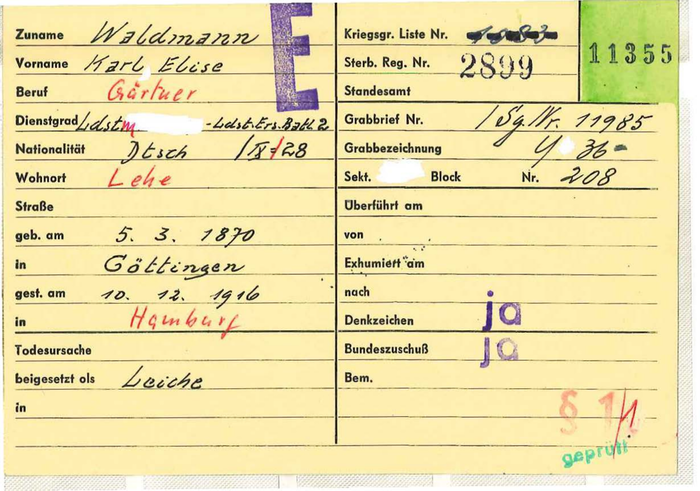 E
Zuname Waldmann
Vorname Karl Elise
Beruf Gärtner
Dienstgrad Ldstm -Ldst.Ers.Batl 2
Nationalität Dtsch /IX=/28
Wohnort Lehe
Straße
geb. am 5. 3. 1870
in Göttingen
gest. am 10. 12. 1916
in Hamburg
Todesursache
beigesetzt als Leiche
in
Kriegsgr. Liste Nr.
Sterb. Reg. Nr. 2899
Standesamt
11355
Grabbrief Nr. / Sg. Nr. 11985
Grabbezeichnung 36-
Sekt. Block Nr. 208
Überführt am
von
Exhumiert am
nach
Denkzeichen ja
Bundeszuschuß ja
Bem.
§ 1/1
geprüft